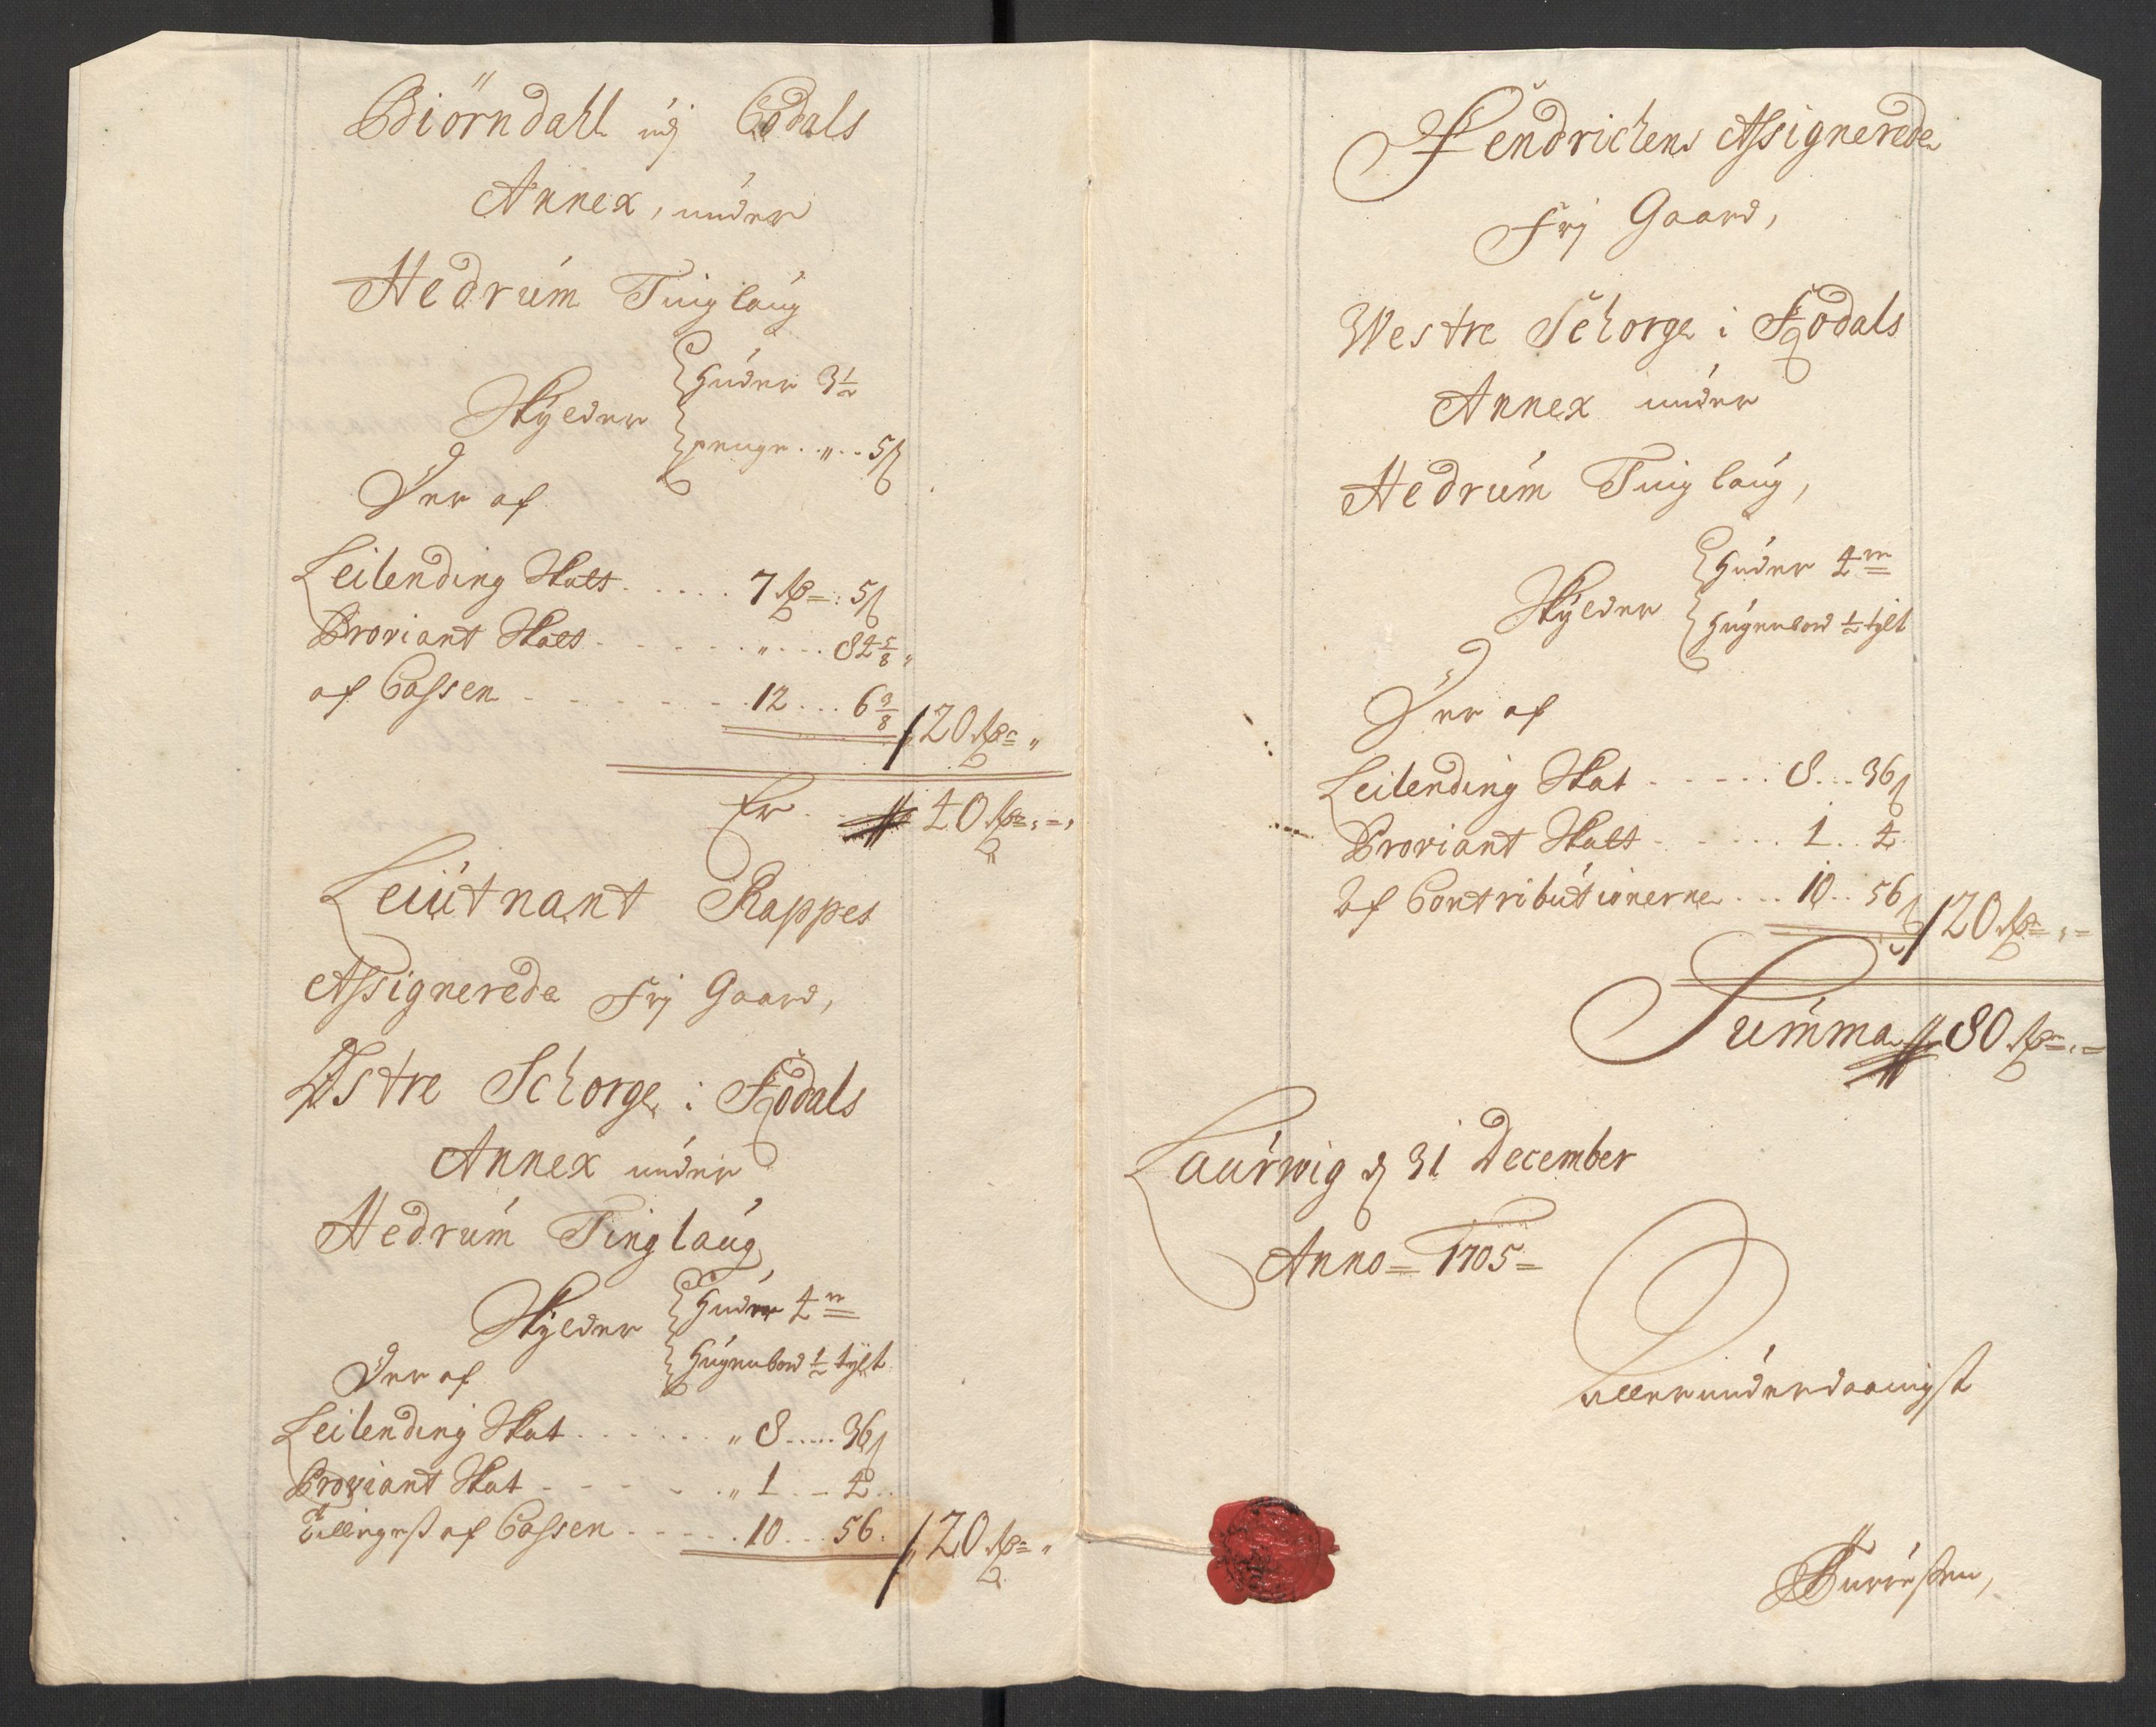 Biörndahl udj Codals
Annex, under
Hedrum Tinglaug
Skylder
Huder 3½
penge . " . . 5 ß
Der af
Leilending Skatt . . . . . 7 Rdr : 5 ß
Proviant Skatt . . . . . " . . . 84 5/8 "
af Cassen . . . . . 12 . . . 6 3/8 / 20 Rdr "
Er . . 40 Rdr
Leiutnant Rappes
Assignerede Frj Gaard,
Östre Schorge i Kodals
Annex under
Hedrum Tinglaug
Skylder
Huder 4
Hugenbord ½ tylt
Der af
Leilending Skat . . . . . " 8 . . . . . 36 ß
Proviant Skat . . . . . " 1 . . 4 . .
Tillegest af Cassen . . . . . 10 . . . 56 . / 20 Rdr "
Fendrichens Assignerede
Frj Gaard,
Westre Schorge i Kodals
Annex under
Hedrum Tinglaug,
Skylder
Huder 4
Hugenbord ½ tylt
Der af
Leilending Skat . . . . . 8 . . . 36 ß
Proviant Skatt . . . . . 1 . . 4
Af Contributionerne . . . 10 . . 56 ß / 20 Rdr
Summa 80 Rdr
Laurwig d 31 December
Anno = 1705 =
allerunderdaanigst